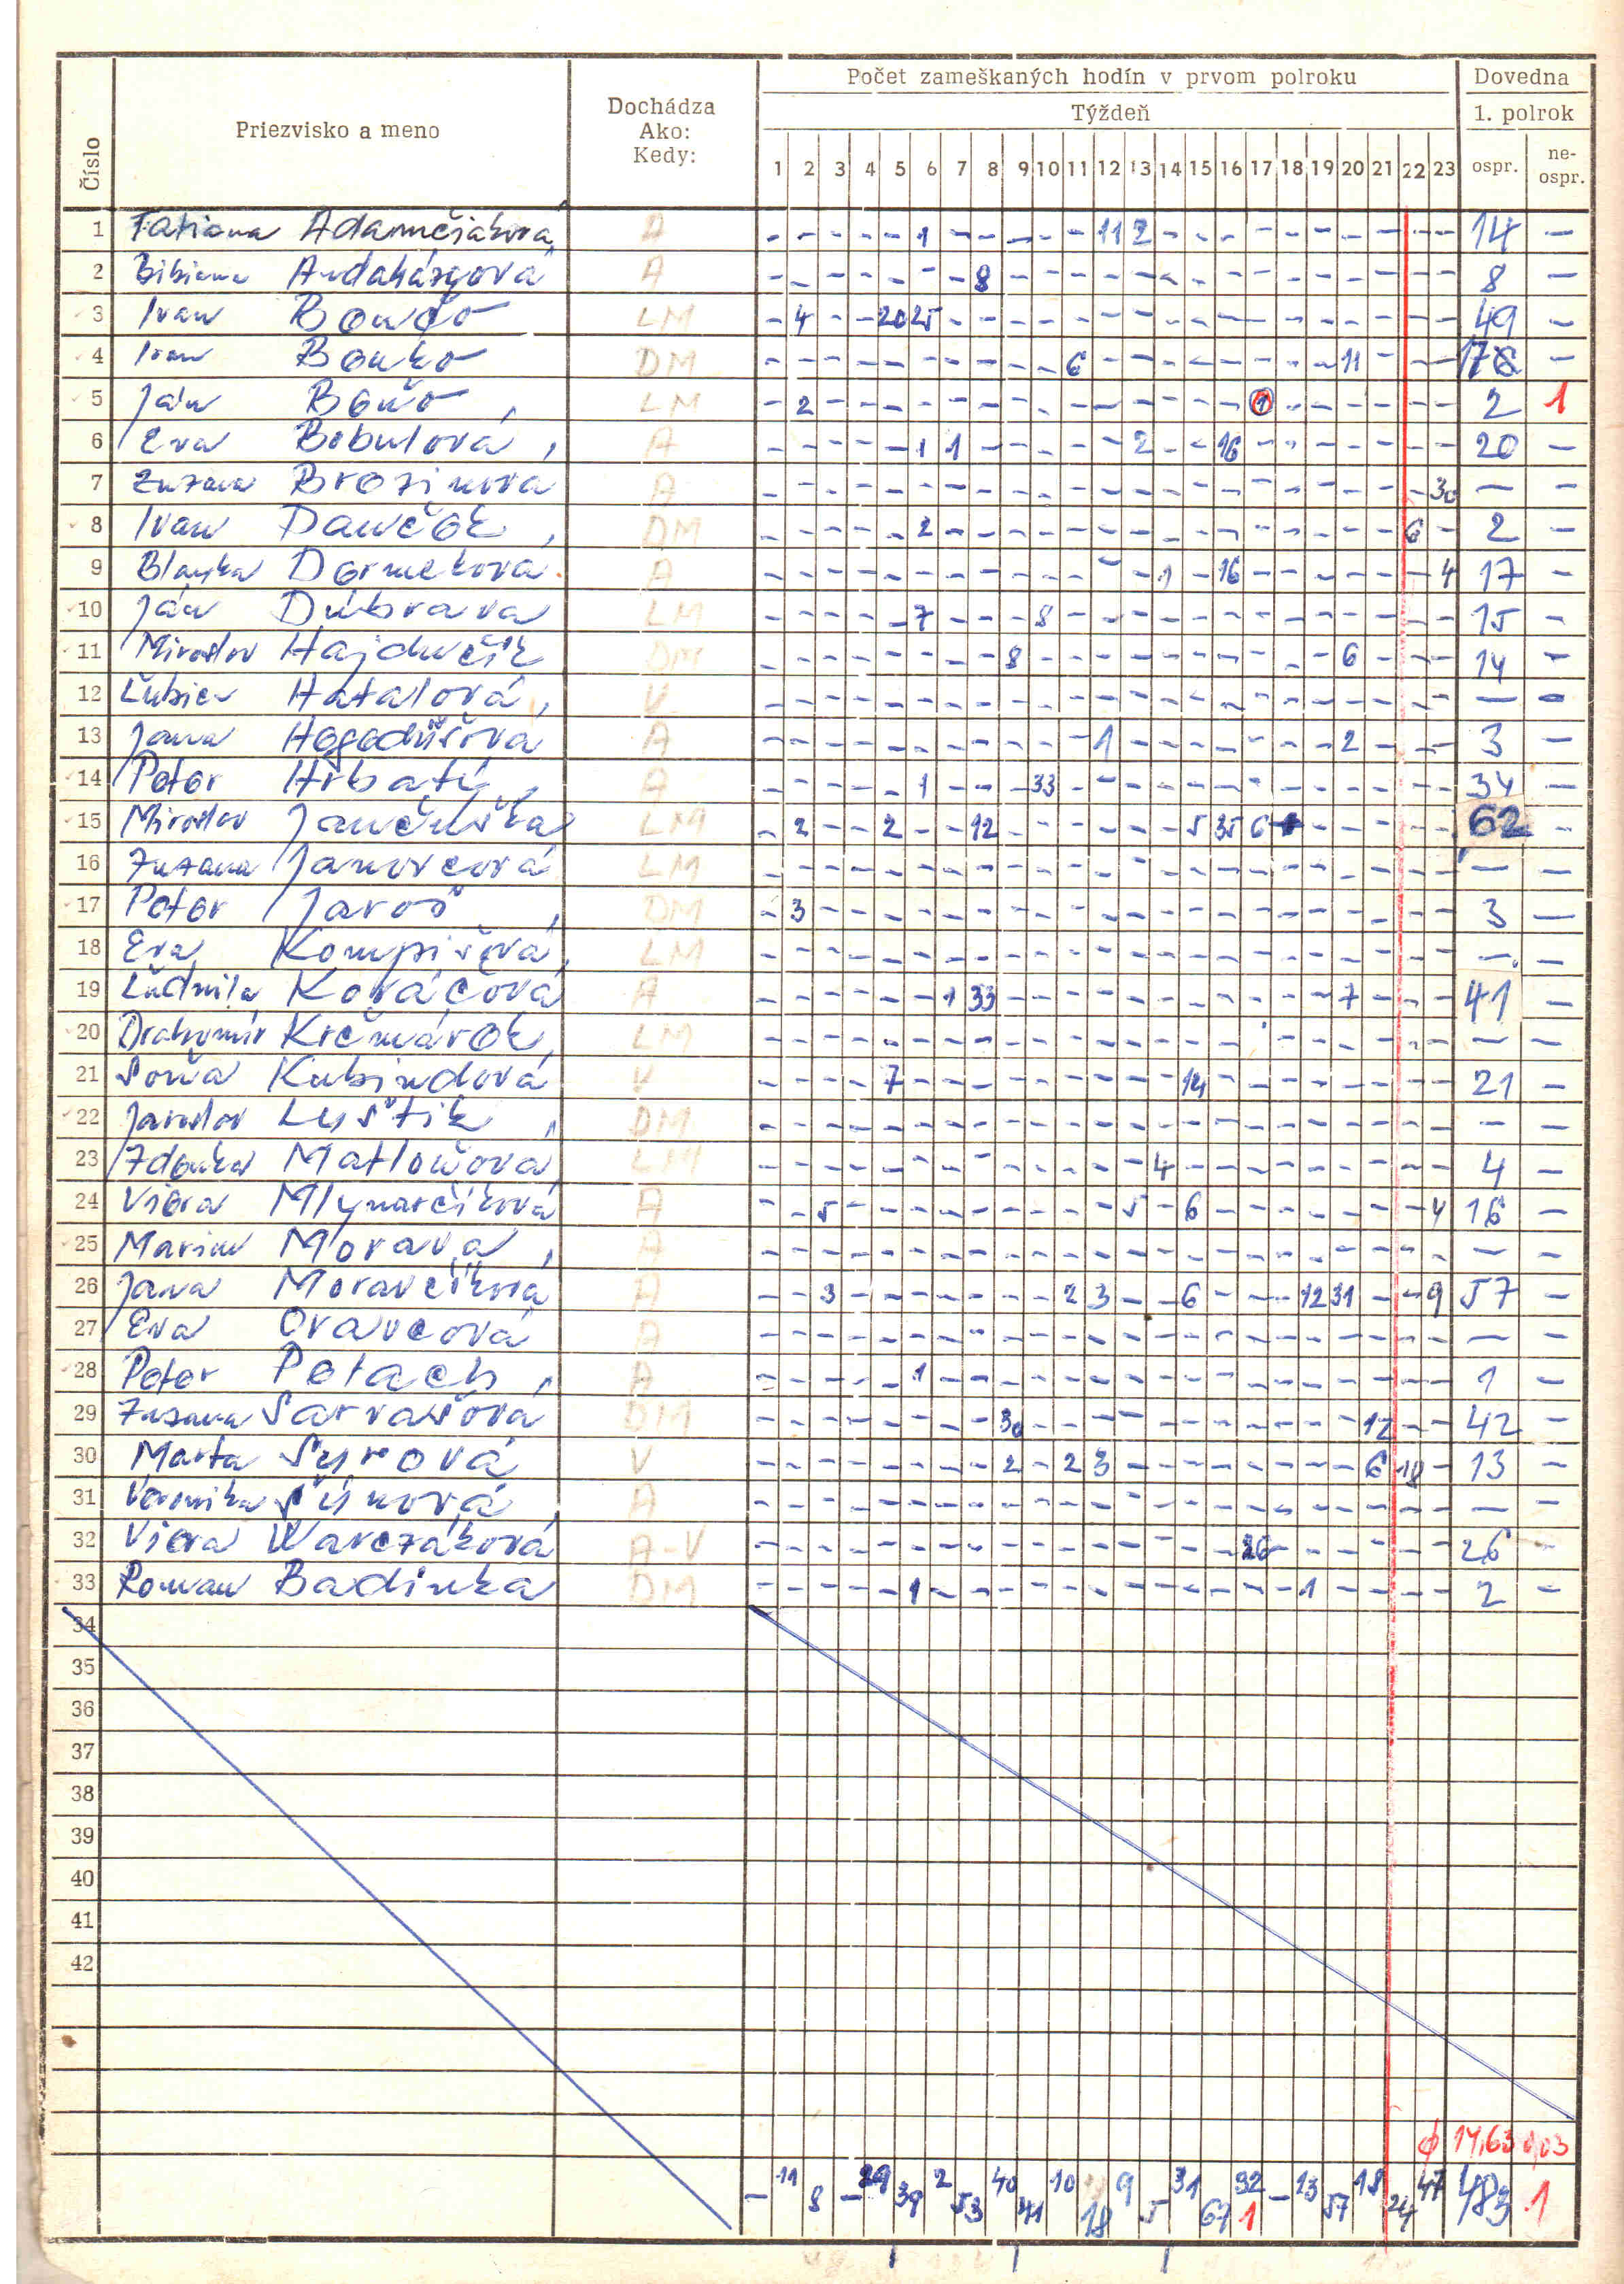 Počet zameškaných hodín v prvom polroku Dovedna
Číslo Priezvisko a meno Dochádza Ako: Kedy: Týždeň 1. polrok
1 2 3 4 5 6 7 8 9 10 11 12 13 14 15 16 17 18 19 20 21 22 23 ospr. ne-ospr.
1 Tatiana Adamčiaková A - - - - - 1 - - - - - 11 2 - - - - - - - - - - 14 -
2 Bibiana A - - - - - - - 8 - - - - - - - - - - - - - - - 8 -
3 Ivan LM - 4 - - 20 25 - - - - - - - - - - - - - - - - - 49 -
4 Ivan DM - - - - - - - - - - 6 - - - - - - - - 11 - - - 17 -
5 Ján LM - 2 - - - - - - - - - - - - - - 1 - - - - - - 2 1
6 Eva Bobulová A - - - - - 1 1 - - - - - 2 - - 16 - - - - - - - 20 -
7 Zuzana A - - - - - - - - - - - - - - - - - - - - - - 30 - -
8 Ivan Danček DM - - - - - 2 - - - - - - - - - - - - - - - 6 - 2 -
9 Blanka A - - - - - - - - - - - - - 1 - 16 - - - - - - 4 17 -
10 Ján Dúbrava LM - - - - - 7 - - - 8 - - - - - - - - - - - - - 15 -
11 Miroslav Hajdučík DM - - - - - - - - 8 - - - - - - - - - - 6 - - - 14 -
12 Hatalová V - - - - - - - - - - - - - - - - - - - - - - - - -
13 Jana A - - - - - - - - - - - 1 - - - - - - - 2 - - - 3 -
14 Peter Hrbatý A - - - - - 1 - - - 33 - - - - - - - - - - - - - 34 -
15 Miroslav Jančuška LM - 2 - - 2 - - 12 - - - - - - 5 35 6 - - - - - 62 -
16 Zuzana Janovcová LM - - - - - - - - - - - - - - - - - - - - - - - - -
17 Peter Jaroš DM - 3 - - - - - - - - - - - - - - - - - - - - - 3 -
18 Eva Kompišová LM - - - - - - - - - - - - - - - - - - - - - - - - -
19 Ľudmila Kováčová A - - - - - - 1 33 - - - - - - - - - - - 7 - - - 41 -
20 Drahomír Krčmárek LM - - - - - - - - - - - - - - - - - - - - - - - - -
21 Soňa Kubindová V - - - - 7 - - - - - - - - - 14 - - - - - - - - 21 -
22 Jaroslav Luštík DM - - - - - - - - - - - - - - - - - - - - - - - - -
23 Zdenka Matloňová LM - - - - - - - - - - - - - 4 - - - - - - - - - 4 -
24 Viera Mlynarčíková A - - 5 - - - - - - - - - 5 - 6 - - - - - - - 4 16 -
25 Marian Morava A - - - - - - - - - - - - - - - - - - - - - - - - -
26 Jana Moravčíková A - - 3 - - - - - - - 2 3 - - 6 - - - 12 31 - - 9 57 -
27 Eva Oravcová A - - - - - - - - - - - - - - - - - - - - - - - - -
28 Peter Petach A - - - - - 1 - - - - - - - - - - - - - - - - - 1 -
29 Zuzana Sarvašová DM - - - - - - - - 30 - - - - - - - - - - - 12 - - 42 -
30 Marta Synová V - - - - - - - - 2 - 2 3 - - - - - - - - 6 18 - 13 -
31 Veronika A - - - - - - - - - - - - - - - - - - - - - - - - -
32 Viera Warczáková A-V - - - - - - - - - - - - - - - - 26 - - - - - - 26 -
33 Roman Badinka DM - - - - - 1 - - - - - - - - - - - - 1 - - - - 2 -
34
35
36
37
38
39
40
41
42
ϕ 14,63 0,03
- 11 8 - 29 39 2 53 40 41 10 18 9 5 31 67 32 1 - 13 57 18 24 47 483 1